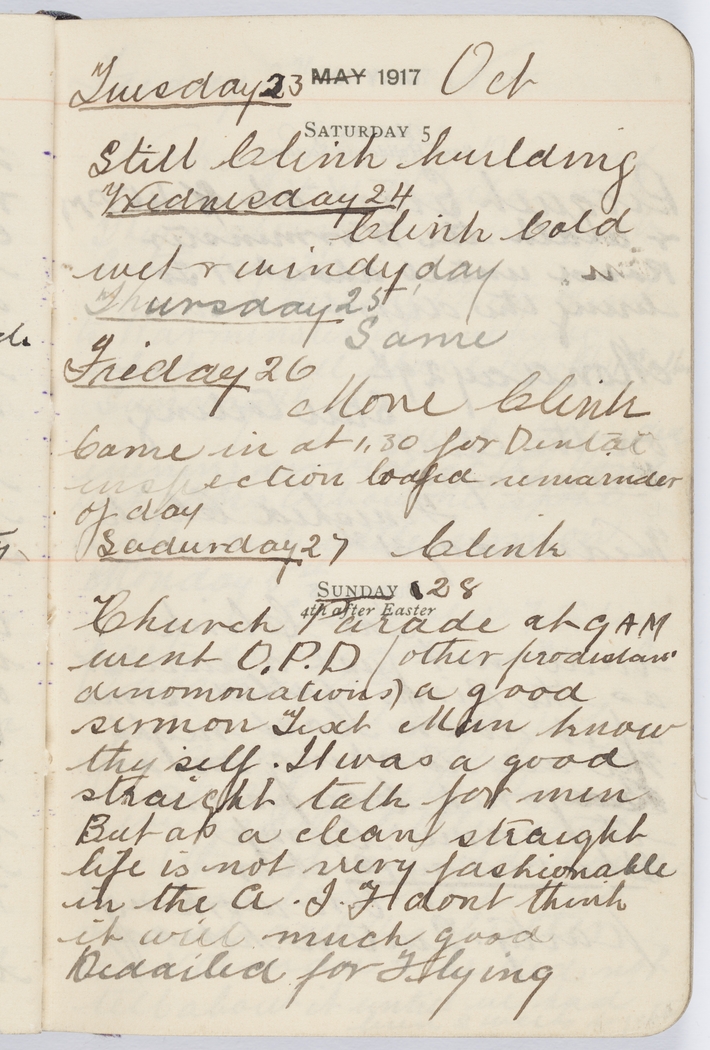 Tuesday 23 MAY 1917 Oct
SATURDAY 5
Still Clink building
Wednesday 24
Clink Cold
wet & windy day
Thursday 25
Same
Friday 26
More Clink
Came in at 1.30 for Dental
inspection loafed remainder
of day
Sadurday 27 Clink
SUNDAY 28
4th after Easter
Church Parade at 9 AM
went O.P.D (other prodistant
dinomonations) a good
sermon Text Man know
thy self. It was a good
straight talk for men
But as a clean straight
life is not very fashionable
in the A.I.F dont think
it will much good
Dedailed for Flying